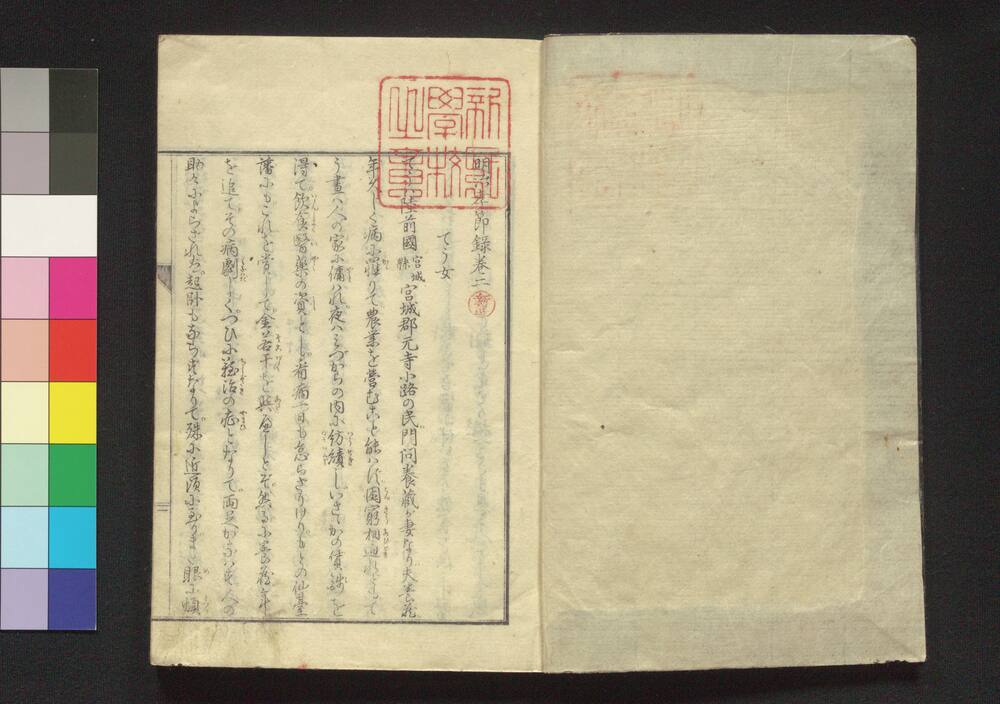 明治孝節録巻二
てう女
てう女ハ陸前國宮城縣宮城郡元寺小路の民門間養蔵が妻なり夫養蔵
年久しく病に罹りて農業を営むこと能ハず困窮相迫れるをもて
う晝ハ人の家に傭ハれ夜ハミづからの内に紡績しいさゝかの賃銭を
得て飲食醫薬の資とし看病一日も怠らざりけりもとの仙臺
藩にもこれを賞して金若干を與へしとぞ然るに養蔵年
を追てその病劇しくつひに難治の症となりて両足かなハず人の
助けによらざれバ起臥もならずなりて殊に近頃に至りまた眼に煩